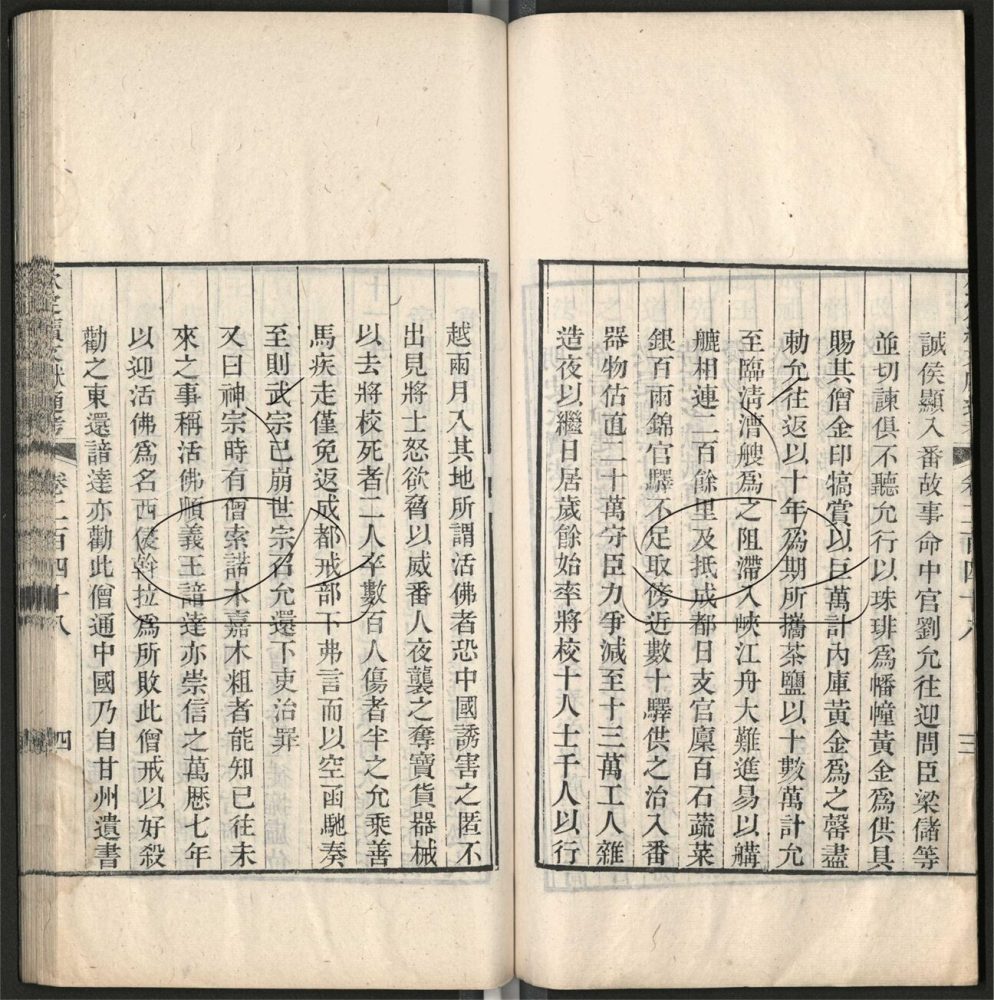 誠侯顯入番故事命中官劉允往迎問臣梁儲等
並切諫俱不聽允行以珠琲爲幡幢黃金爲供具
賜其僧金印犒賞以巨萬計內庫黃金爲之罄盡
勅允往返以十年爲期所攜茶鹽以十數萬計允
至臨清漕艘爲之阻滯入峽江舟大難進易以䑽
䑽相連二百餘里及抵成都日支官廩百石蔬菜
銀百兩錦官驛不足取傍近數十驛供之治入番
器物估直二十萬守臣力爭減至十三萬工人雜
造夜以繼日居歲餘始率將校十人士千人以行
越兩月入其地所謂活佛者恐中國誘害之匿不
出見將士怒欲脅以威番人夜襲之奪寶貨器械
以去將校死者二人卒數百人傷者半之允乘善
馬疾走僅免返成都戒部下弗言而以空函馳奏
至則武宗已崩世宗召允還下吏治罪
又曰神宗時有僧索諾木嘉木粗者能知已往未
來之事稱活佛順義王諳達亦崇信之萬歷七年
以迎活佛爲名西侵斡拉爲所敗此僧戒以好殺
勸之東還諳達亦勸此僧通中國乃自甘州遺書
欽定續文獻通考 卷二百四十八 四